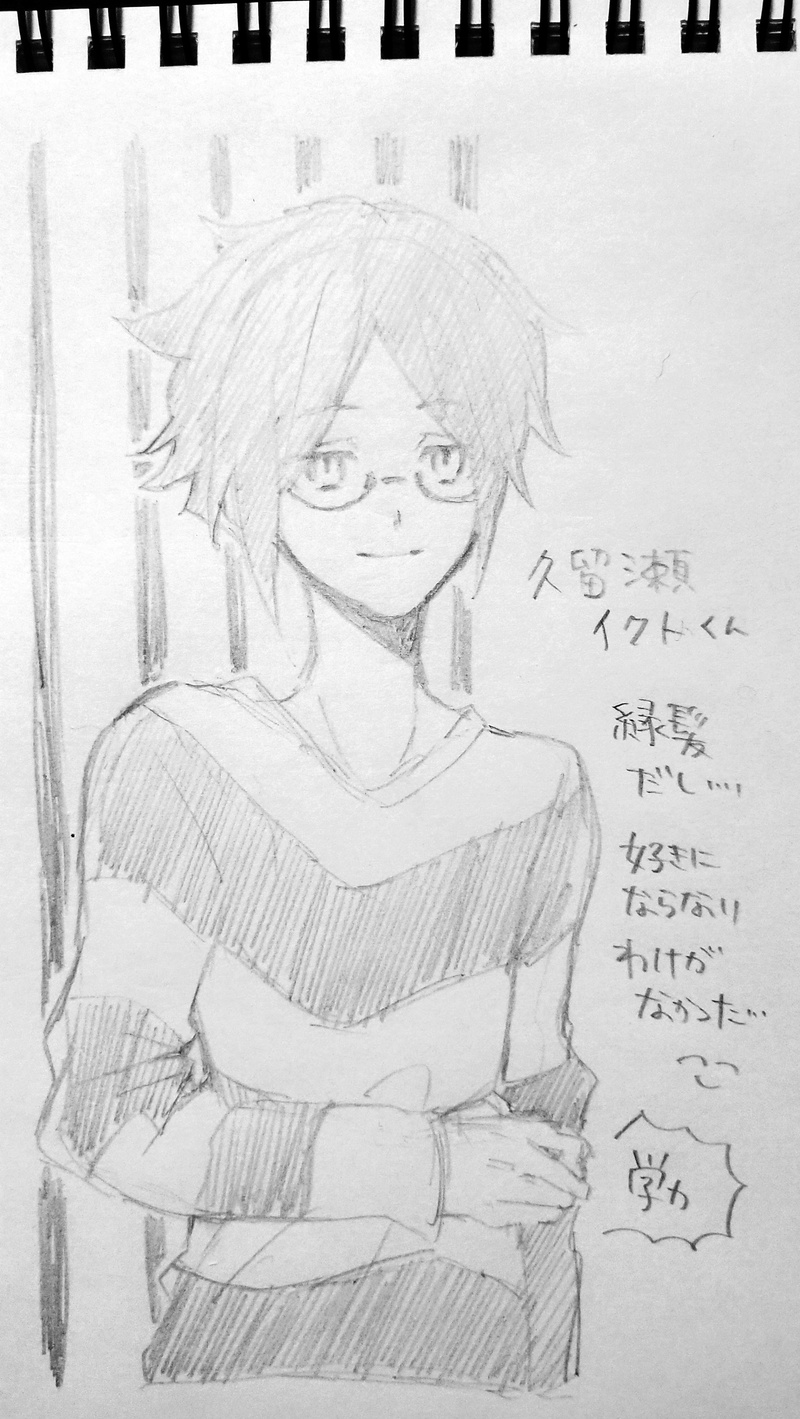 久留瀬
イクトくん
緑髪
だし…
好きに
ならない
わけが
なかった…
学力